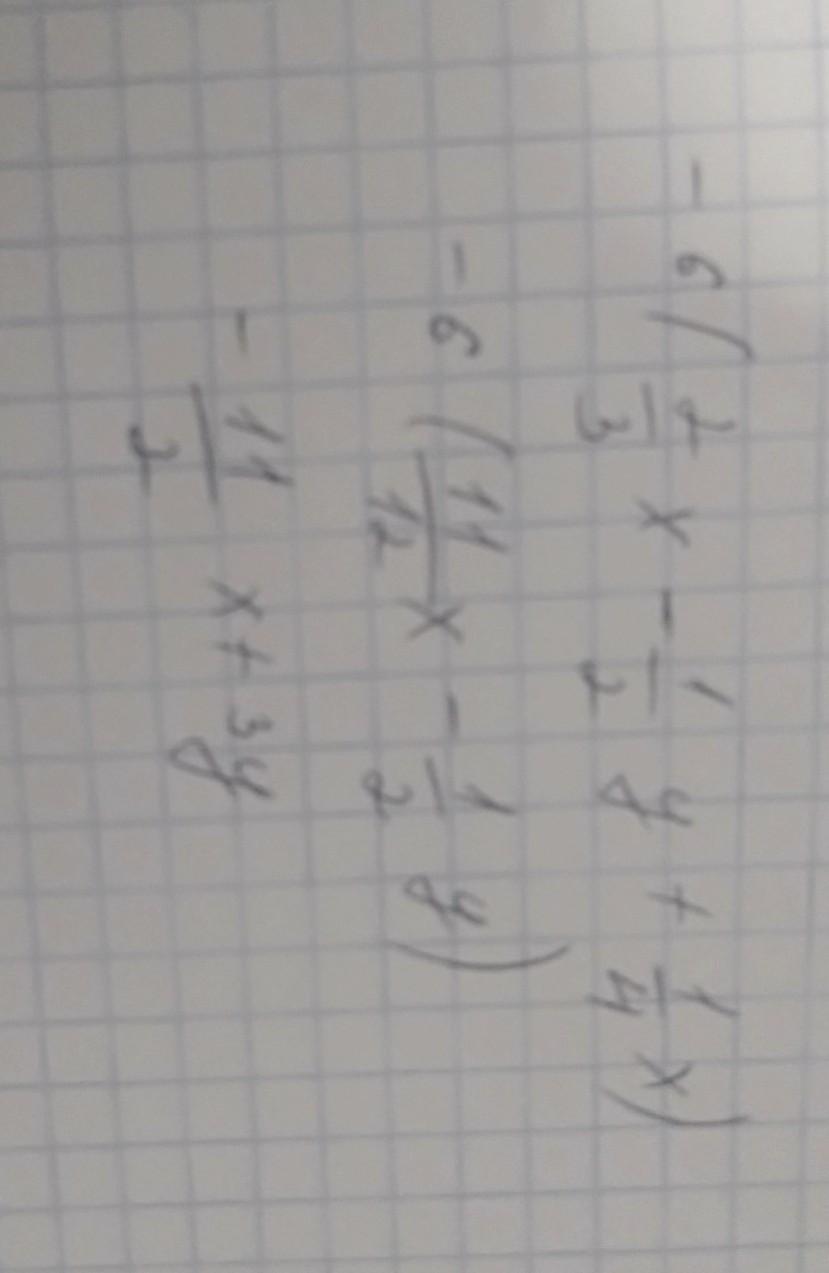 -6(2/3 x - 1/2 y + 1/4 x)
-6(11/12 x - 1/2 y)
- 11/2 x + 3y